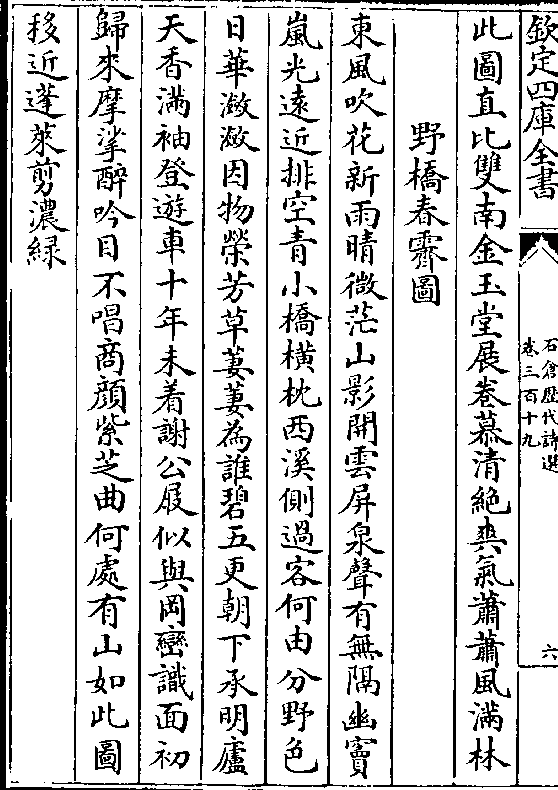 欽定四庫全書
石倉歷代詩選
卷三百十九
六
此圖直比雙南金玉堂展巻慕清絶爽氣蕭蕭風滿林
野橋春霽圖
東風吹花新雨晴微茫山影開雲屏泉聲有無隔幽竇
嵐光遠近排空青小橋橫枕西溪側過客何由分野色
日華潋潋因物榮芳草萋萋為誰碧五更朝下承明廬
天香滿袖登遊車十年未着謝公屐似與岡巒識面初
歸來摩挲醉吟目不唱商顔紫芝曲何處有山如此圖
移近蓬萊剪濃緑